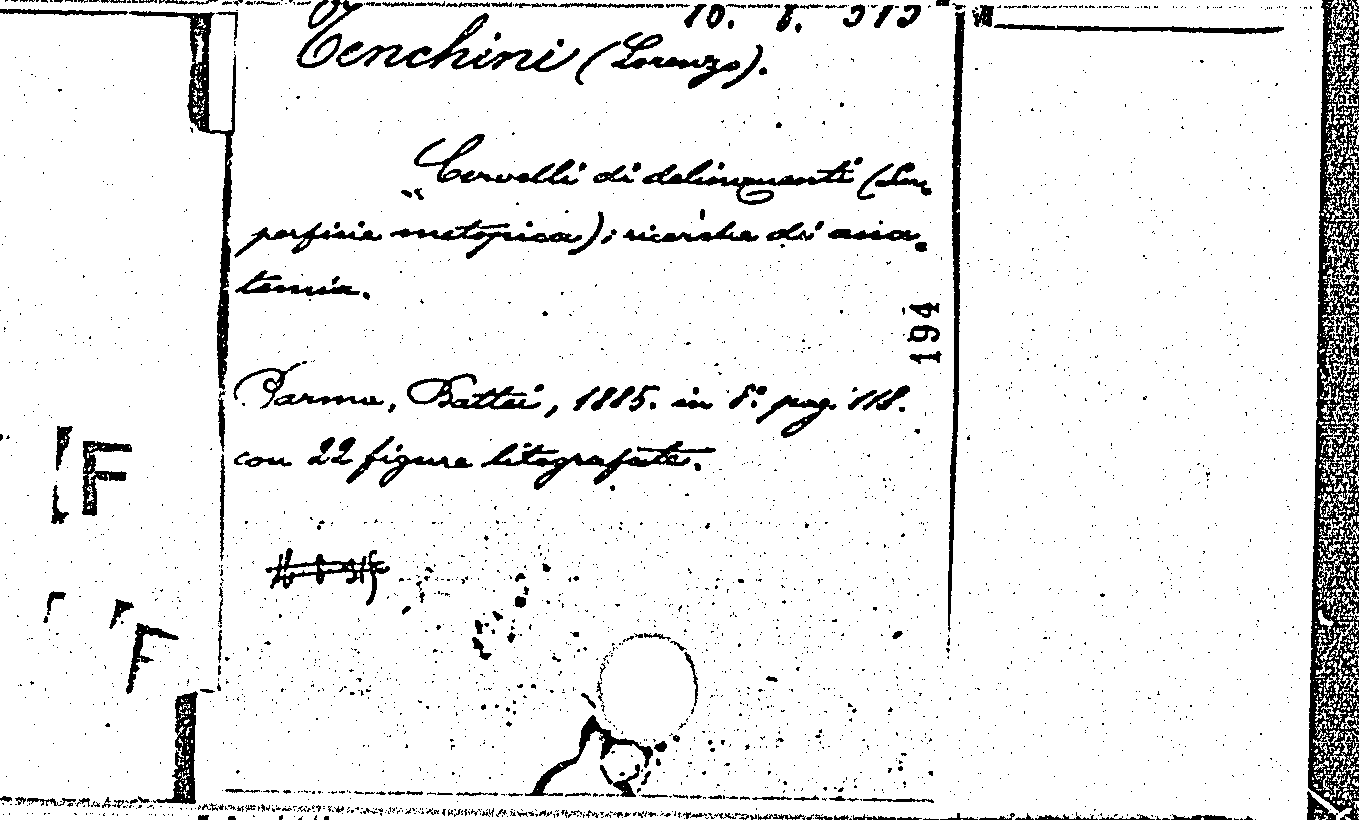 16. 8. 315
Tenchini (Lorenzo).
Cervelli di delinquenti (Su-
perficie metopica); ricerche di ana-
tomia.
194
Parma, Battei, 1885. in 8.° pag. 118.
con 22 figure litografate.
16 8 315
F
F